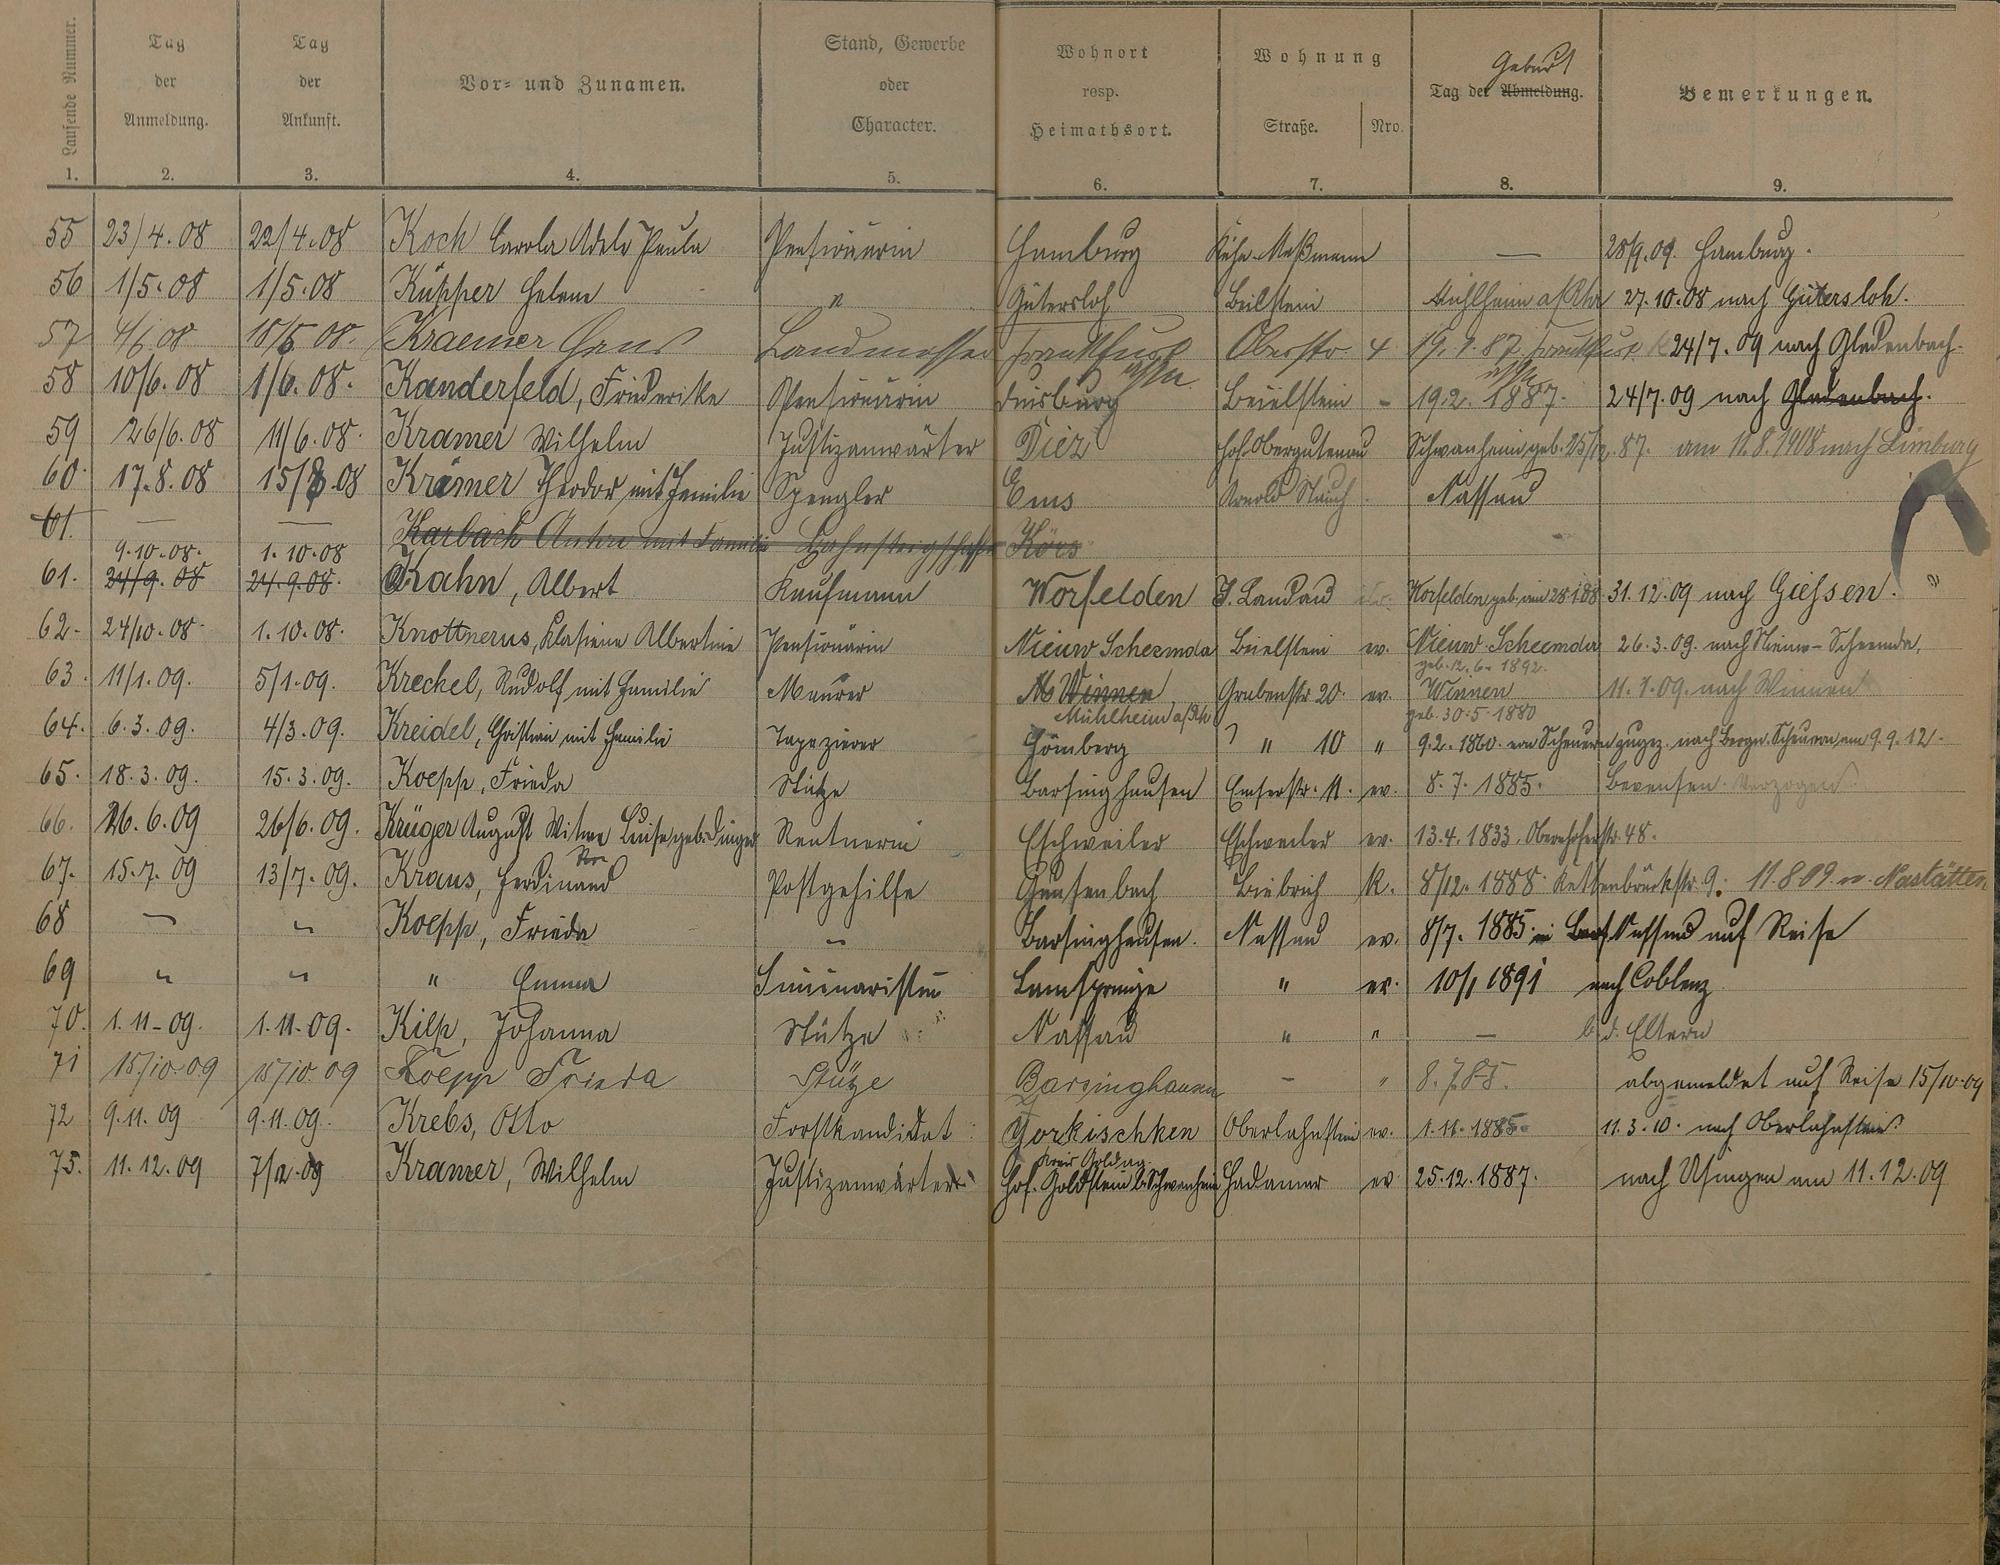 Laufende Nummer.
Tag der Anmeldung.
Tag der Ankunft.
Vor- und Zunamen.
Stand, Gewerbe oder Character.
Wohnort resp. Heimathsort.
Wohnung
Straße. Nro.
Geburt
Tag der Abmeldung.
Bemerkungen.
1. 2. 3. 4. 5. 6. 7. 8. 9.
55 23/4.08 22/4.08 Koch Carola Adele Paula Pensionärin Hamburg — 28/9.09. Hamburg.
56 1/5.08 1/5.08 Küpper Helene " Gütersloh Beilstein Mühlheim a/Rhr 27.10.08 nach Gütersloh.
57 Kraemer Hans Landmesser Frankfurt Oberstr. 4 Frankfurt 24/7.09 nach Gladenbach.
58 10/6.08 1/6.08. Kanderfeld, Friederike Pensionärin Duisburg Beielstein - 19.2. 1887. 24/7.09 nach Gladenbach.
59 26/6.08 11/6.08. Kramer Wilhelm Justizanwärter Diez Schwanheim, geb. 25/12.87. am 11.8.1908 nach Limburg
60. 17.8.08 15/8.08 Krämer Theodor mit Familie Spengler Ems Arnold Nassau
61. — — Karbach Anton mit Familie
9.10.08. 1.10.08
61. 24/9.08 24.9.08. Kahn, Albert Kaufmann Worfelden J. Landau Worfelden geb. am 31.12.09 nach Giessen.
62. 24/10.08. 1.10.08. Knottnerus, Klasiena Albertine Pensionärin Nieuw Scheemda Beielstein ev. Nieuw Scheemda 26.3.09. nach Nieuw-Scheemda,
geb. 12.6. 1892.
63. 11/1.09. 5/1.09. Kreckel, Rudolf mit Familie Maurer Winnen Grabenstr 20. ev. Winnen 11.7.09. nach Winnen
Mühlheim a/Rh geb. 30.5.1880
64. 6.3.09. 4/3.09. Kreidel, Christian mit Familie Tapezierer Hömberg " 10 " 9.2.1860. von Scheuern zugez. nach Bergn. Scheuern, am 9.9.12.
65. 18.3.09. 15.3.09. Koepp, Frieda Stütze Barsinghausen Emserstr. 11. ev. 8.7.1885. Bevensen verzogen
66. 26.6.09 26/6.09. Krüger August Witwe Luise geb. Dinger Rentnerin Eschweiler Eschweiler ev. 13.4.1833. Obernhoferstr. 48.
67. 15.7.09 13/7.09. Kraus, Ferdinand Postgehilfe Biebrich K. 8/12.1888. Kettenbrückstr. 9. 11.8.09. n. Nastätten
68 " " Koepp, Frieda " Barsinghausen. Nassau ev. 8/7.1885. Nassau auf Reise
69 " " " Emma Seminaristin Lamspringe " ev. 10/1 1891 nach Coblenz
70. 1.11.09. 1.11.09. Kilp, Johanna Stütze Nassau " " — b.d. Eltern
71 15/10.09 15/10.09 Koepp Frieda Stütze Barsinghausen - " 8.7.85. abgemeldet auf Reise 15/10.09
72 9.11.09 9.11.09. Krebs, Otto Forstkandidat Gorkischken Oberlahnstein ev. 1.11.1885. 11.3.10. nach Oberlahnstein
Kreis Goldap.
75. 11.12.09 7/12.09 Kramer, Wilhelm Justizanwärter Hof. Goldstein b. Schwanheim Hadamar ev 25.12.1887. nach Usingen am 11.12.09